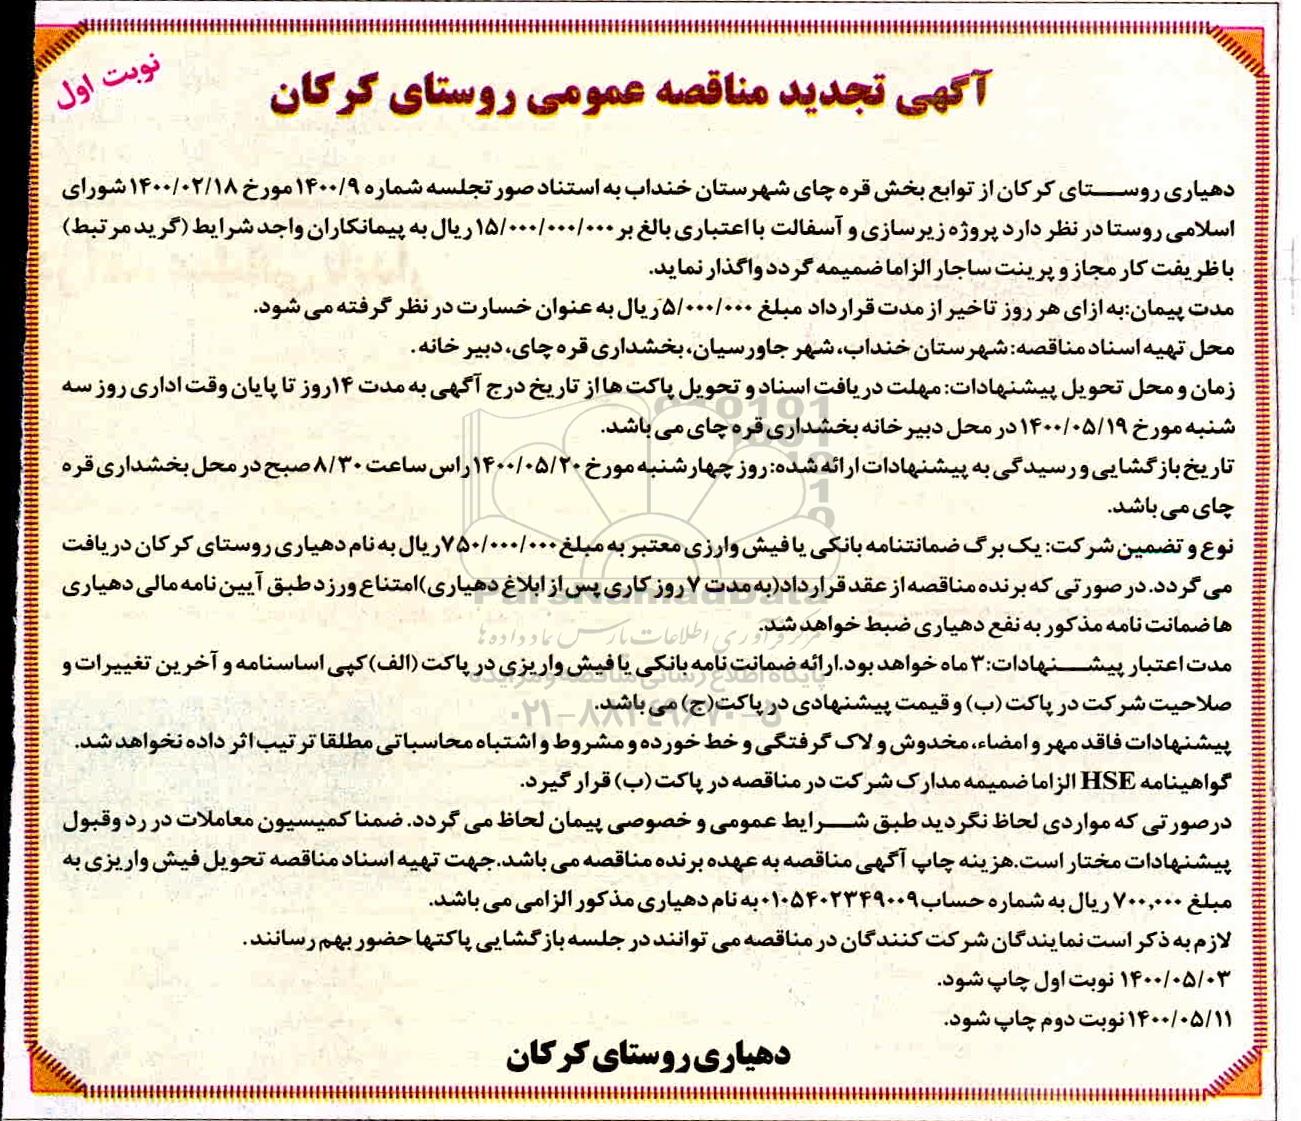 نوبت اول
آگهی تجدید مناقصه عمومی روستای کرکان
دهیاری روستای کرکان از توابع بخش قره چای شهرستان خنداب به استناد صورتجلسه شماره ۱۴۰۰/۹ مورخ ۱۴۰۰/۰۲/۱۸ شورای
اسلامی روستا در نظر دارد پروژه زیرسازی و آسفالت با اعتباری بالغ بر ۱۵/۰۰۰/۰۰۰/۰۰۰ ریال به پیمانکاران واجد شرایط (گرید مرتبط)
با ظریفت کار مجاز و پرینت ساجار الزاما ضمیمه گردد واگذار نماید.
مدت پیمان:به ازای هر روز تاخیر از مدت قرارداد مبلغ ۵/۰۰۰/۰۰۰ ریال به عنوان خسارت در نظر گرفته می شود.
محل تهیه اسناد مناقصه: شهرستان خنداب، شهر جاورسیان، بخشداری قره چای، دبیر خانه .
زمان و محل تحویل پیشنهادات: مهلت دریافت اسناد و تحویل پاکت ها از تاریخ درج آگهی به مدت ۱۴روز تا پایان وقت اداری روز سه
شنبه مورخ ۱۴۰۰/۰۵/۱۹ در محل دبیر خانه بخشداری قره چای می باشد.
تاریخ بازگشایی و رسیدگی به پیشنهادات ارائه شده: روز چهارشنبه مورخ ۱۴۰۰/۰۵/۲۰ راس ساعت ۸/۳۰ صبح در محل بخشداری قره
چای می باشد.
نوع و تضمین شرکت: یک برگ ضمانتنامه بانکی یا فیش وارزی معتبر به مبلغ ۷۵۰/۰۰۰/۰۰۰ریال به نام دهیاری روستای کرکان دریافت
می گردد. در صورتی که برنده مناقصه از عقد قرارداد(به مدت ۷ روز کاری پس از ابلاغ دهیاری)امتناع ورزد طبق آیین نامه مالی دهیاری
ها ضمانت نامه مذکور به نفع دهیاری ضبط خواهد شد.
مدت اعتبار پیشنهادات:۳ ماه خواهد بود.ارائه ضمانت نامه بانکی یا فیش واریزی در پاکت (الف)کپی اساسنامه و آخرین تغییرات و
صلاحیت شرکت در پاکت (ب) و قیمت پیشنهادی در پاکت(ج) می باشد.
پیشنهادات فاقد مهر و امضاء، مخدوش و لاک گرفتگی و خط خورده و مشروط و اشتباه محاسباتی مطلقا ترتیب اثر داده نخواهد شد.
گواهینامه HSE الزاما ضمیمه مدارک شرکت در مناقصه در پاکت (ب) قرار گیرد.
درصورتی که مواردی لحاظ نگردید طبق شرایط عمومی و خصوصی پیمان لحاظ می گردد. ضمنا کمیسیون معاملات در رد وقبول
پیشنهادات مختار است.هزینه چاپ آگهی مناقصه به عهده برنده مناقصه می باشد.جهت تهیه اسناد مناقصه تحویل فیش واریزی به
مبلغ ۷۰۰,۰۰۰ ریال به شماره حساب ۰۱۰۵۴۰۲۳۴۹۰۰۹ به نام دهیاری مذکور الزامی می باشد.
لازم به ذکر است نمایندگان شرکت کنندگان در مناقصه می توانند در جلسه بازگشایی پاکتها حضور بهم رسانند .
۱۴۰۰/۰۵/۰۳ نوبت اول چاپ شود.
۱۴۰۰/۰۵/۱۱ نوبت دوم چاپ شود.
دهیاری روستای کرکان
ParsNamadData
مرکز فرآوری اطلاعات پارس نماد داده ها
پایگاه اطلاع رسانی مناقصه و مزایده
۰۲۱-۸۸۳۴۹۶۷۰-۵